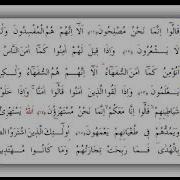 قَالُوا إِنَّمَا نَحْنُ مُصْلِحُونَ ﴿١١﴾ أَلَا إِنَّهُمْ هُمُ الْمُفْسِدُونَ
لَا يَشْعُرُونَ ﴿١٢﴾ وَإِذَا قِيلَ لَهُمْ آمِنُوا كَمَا آمَنَ النَّاسُ
أَنُؤْمِنُ كَمَا آمَنَ السُّفَهَاءُ أَلَا إِنَّهُمْ هُمُ السُّفَهَاءُ وَلَكِنْ
وَإِذَا لَقُوا الَّذِينَ آمَنُوا قَالُوا آمَنَّا وَإِذَا خَلَوْا
قَالُوا إِنَّا مَعَكُمْ إِنَّمَا نَحْنُ مُسْتَهْزِؤُنَ ﴿١٤﴾ اللَّهُ يَسْتَهْزِئُ
وَيَمُدُّهُمْ فِي طُغْيَانِهِمْ يَعْمَهُونَ ﴿١٥﴾ أُولَئِكَ الَّذِينَ اشْتَرَوُا
بِالْهُدَى فَمَا رَبِحَتْ تِجَارَتُهُمْ وَمَا كَانُوا مُهْتَدِينَ